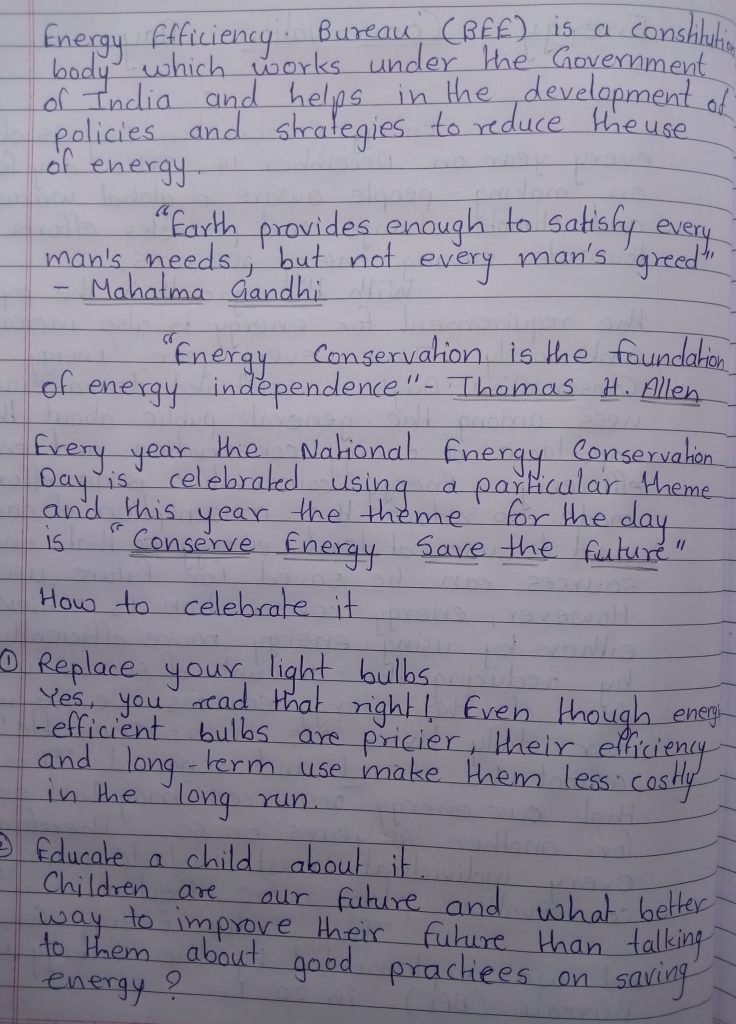 Energy Efficiency Bureau (BEE) is a constitution
body which works under the Government
of India and helps in the development of
policies and strategies to reduce the use
of energy.
"Earth provides enough to satisfy every
man's needs, but not every man's greed"
- Mahatma Gandhi
"Energy Conservation is the foundation
of energy independence" - Thomas H. Allen
Every year the National Energy Conservation
Day is celebrated using a particular theme
and this year the theme for the day
is "Conserve Energy Save the future"
How to celebrate it
① Replace your light bulbs
Yes, you read that right! Even though energy
-efficient bulbs are pricier, their efficiency
and long-term use make them less costly
in the long run.
② Educate a child about it.
Children are our future and what better
way to improve their future than talking
to them about good practices on saving
energy?